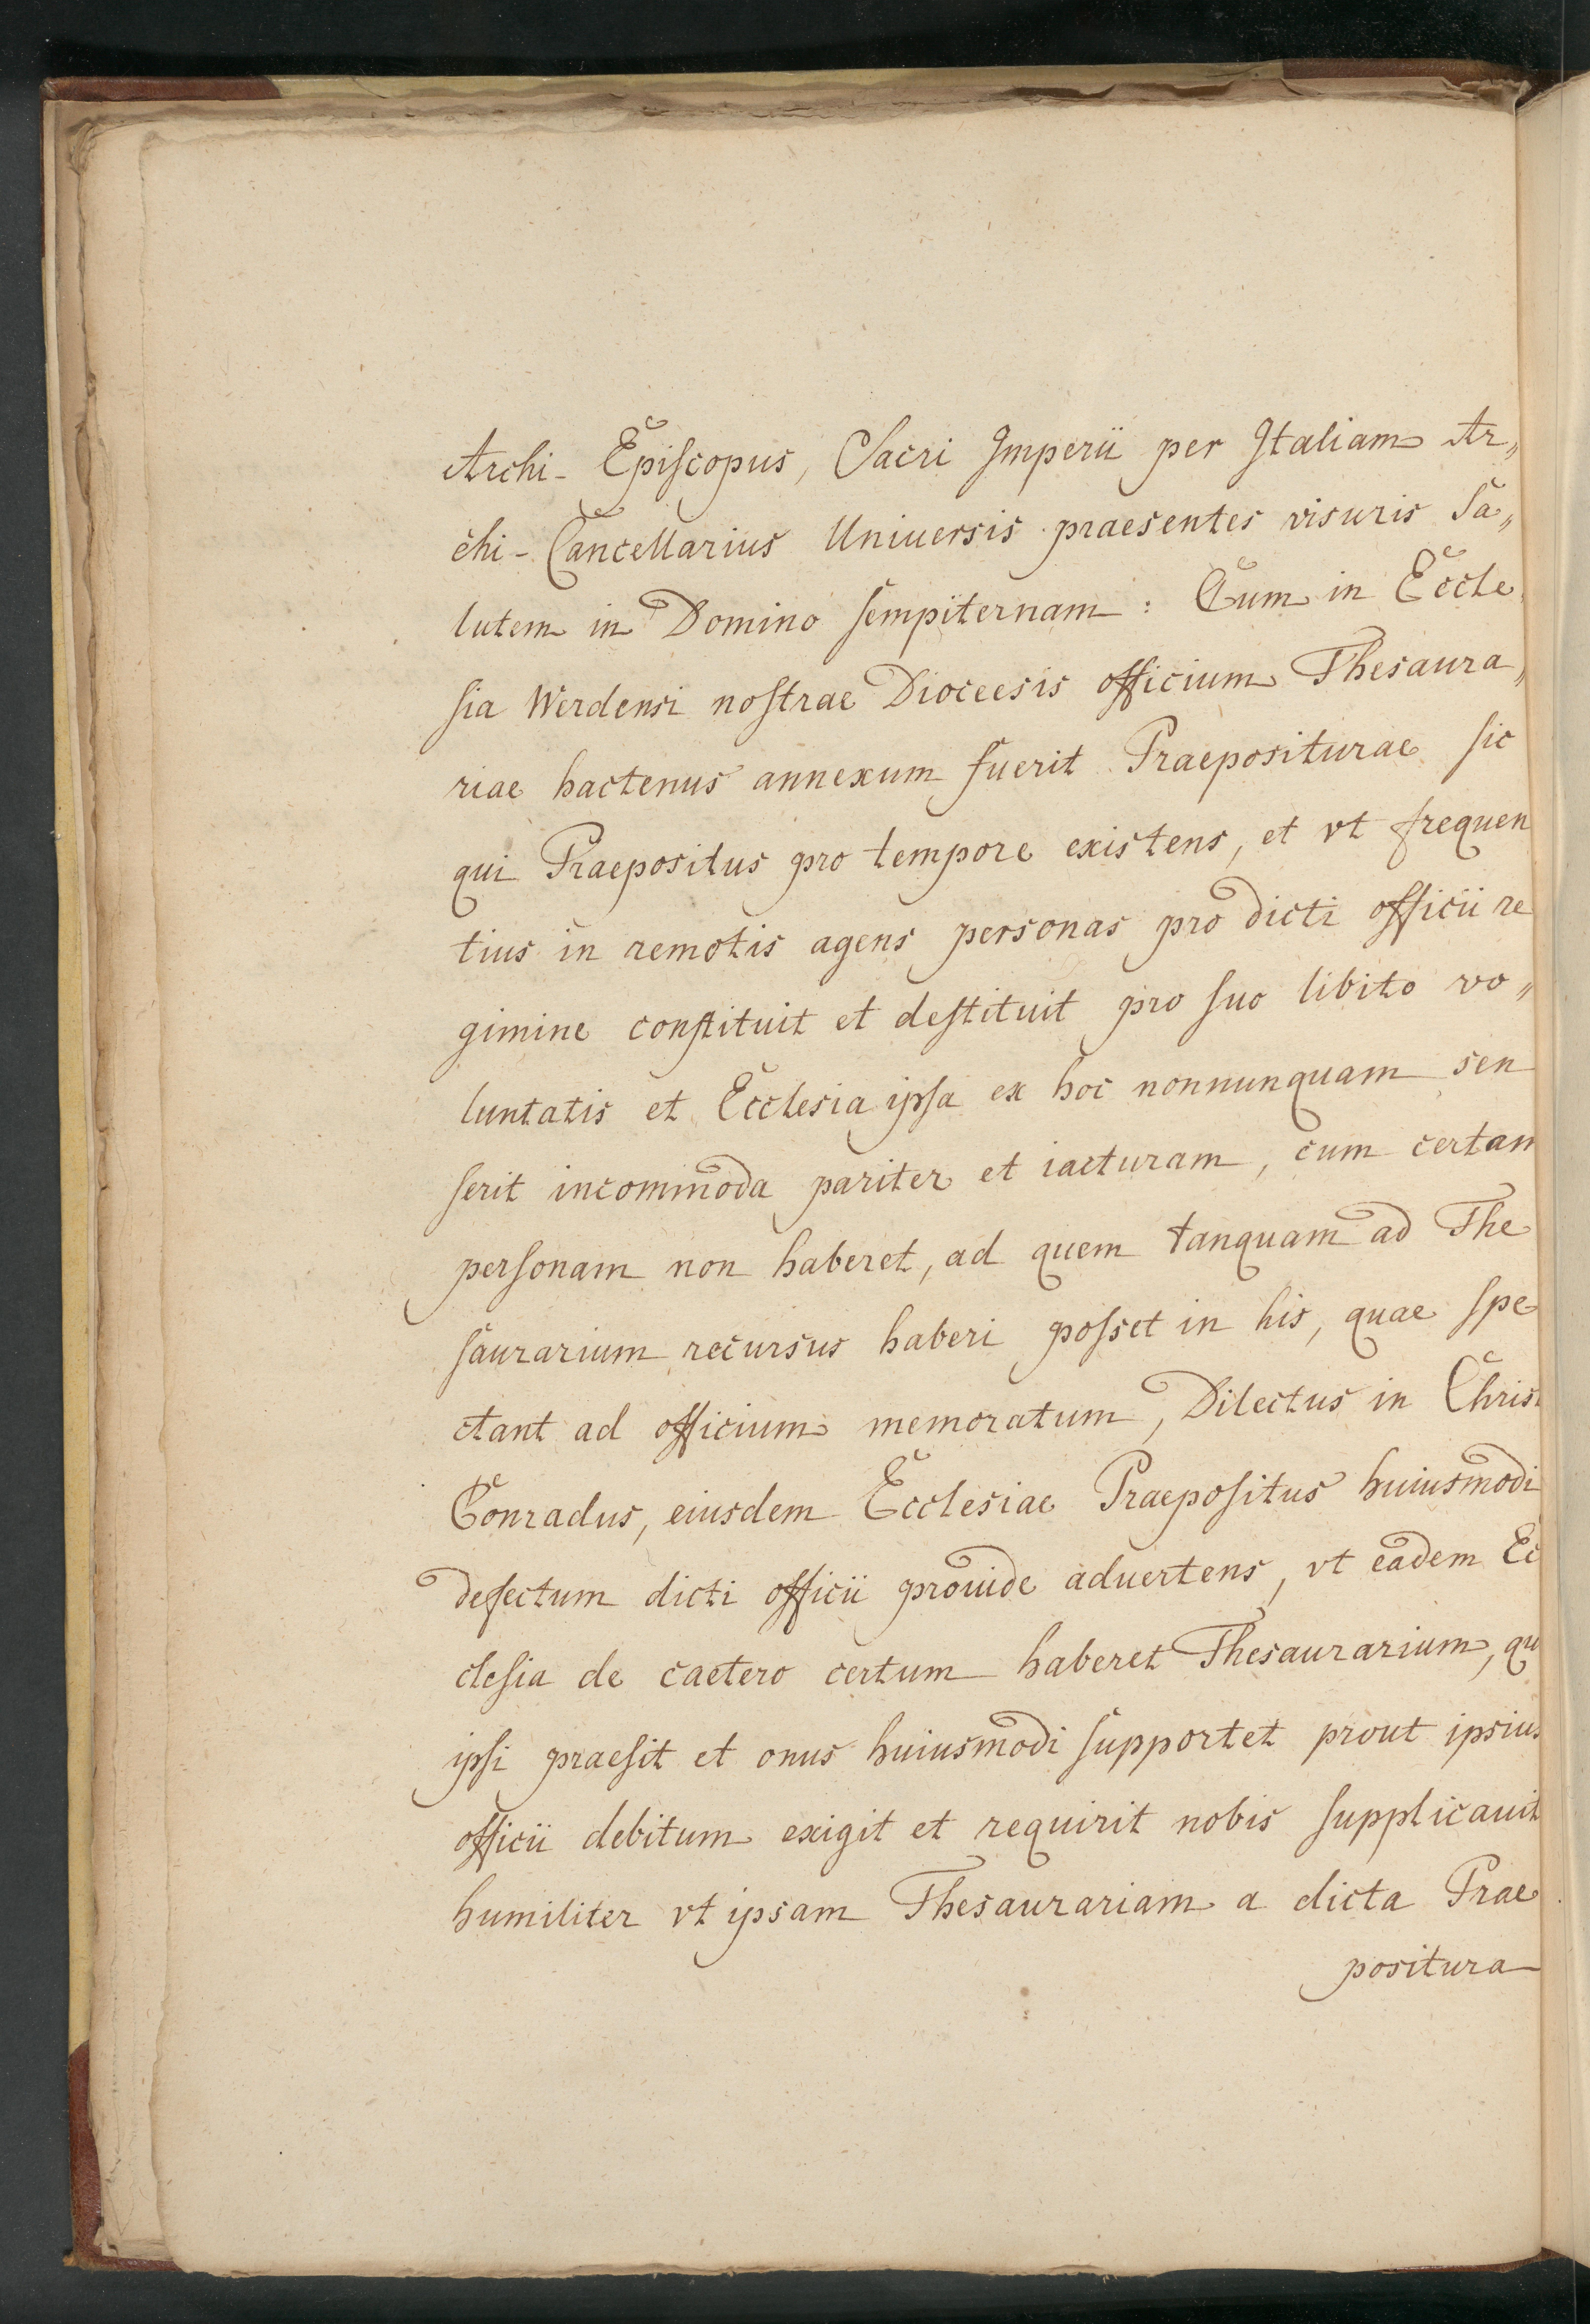 Archi- Episcopus, Sacri Imperii per Italiam Ar„
chi- Cancellarius Uniuersis praesentes visuris Sa„
lutem in Domino sempiternam : Cum in Eccle„
sia Werdensi nostrae Dioceesis officium Thesaura„
riae hactenus annexum fuerit Praepositurae sic
qui Praepositus pro tempore existens, et vt frequen
tius in remotis agens personas pro dicti officii re
gimine constituit et destituit pro suo libito vo„
luntatis et Ecclesia ipsa ex hoc nonnunquam sen
serit incommoda pariter et iacturam, cum certam
personam non haberet, ad quem tanquam ad The
saurarium recursus haberi posset in his, quae spe
ctant ad officium memoratum, Dilectus in Chris
Conradus, eiusdem Ecclesiae Praepositus huiusmodi
defectum dicti officii prouide aduertens, vt eadem Ec
clesia de caetero certum haberet Thesaurarium, qu
ipsi praesit et onus huiusmodi supportet prout ipsius
officii debitum exigit et requirit nobis supplicauit
humiliter vt ipsam Thesaurariam a dicta Prae
positura